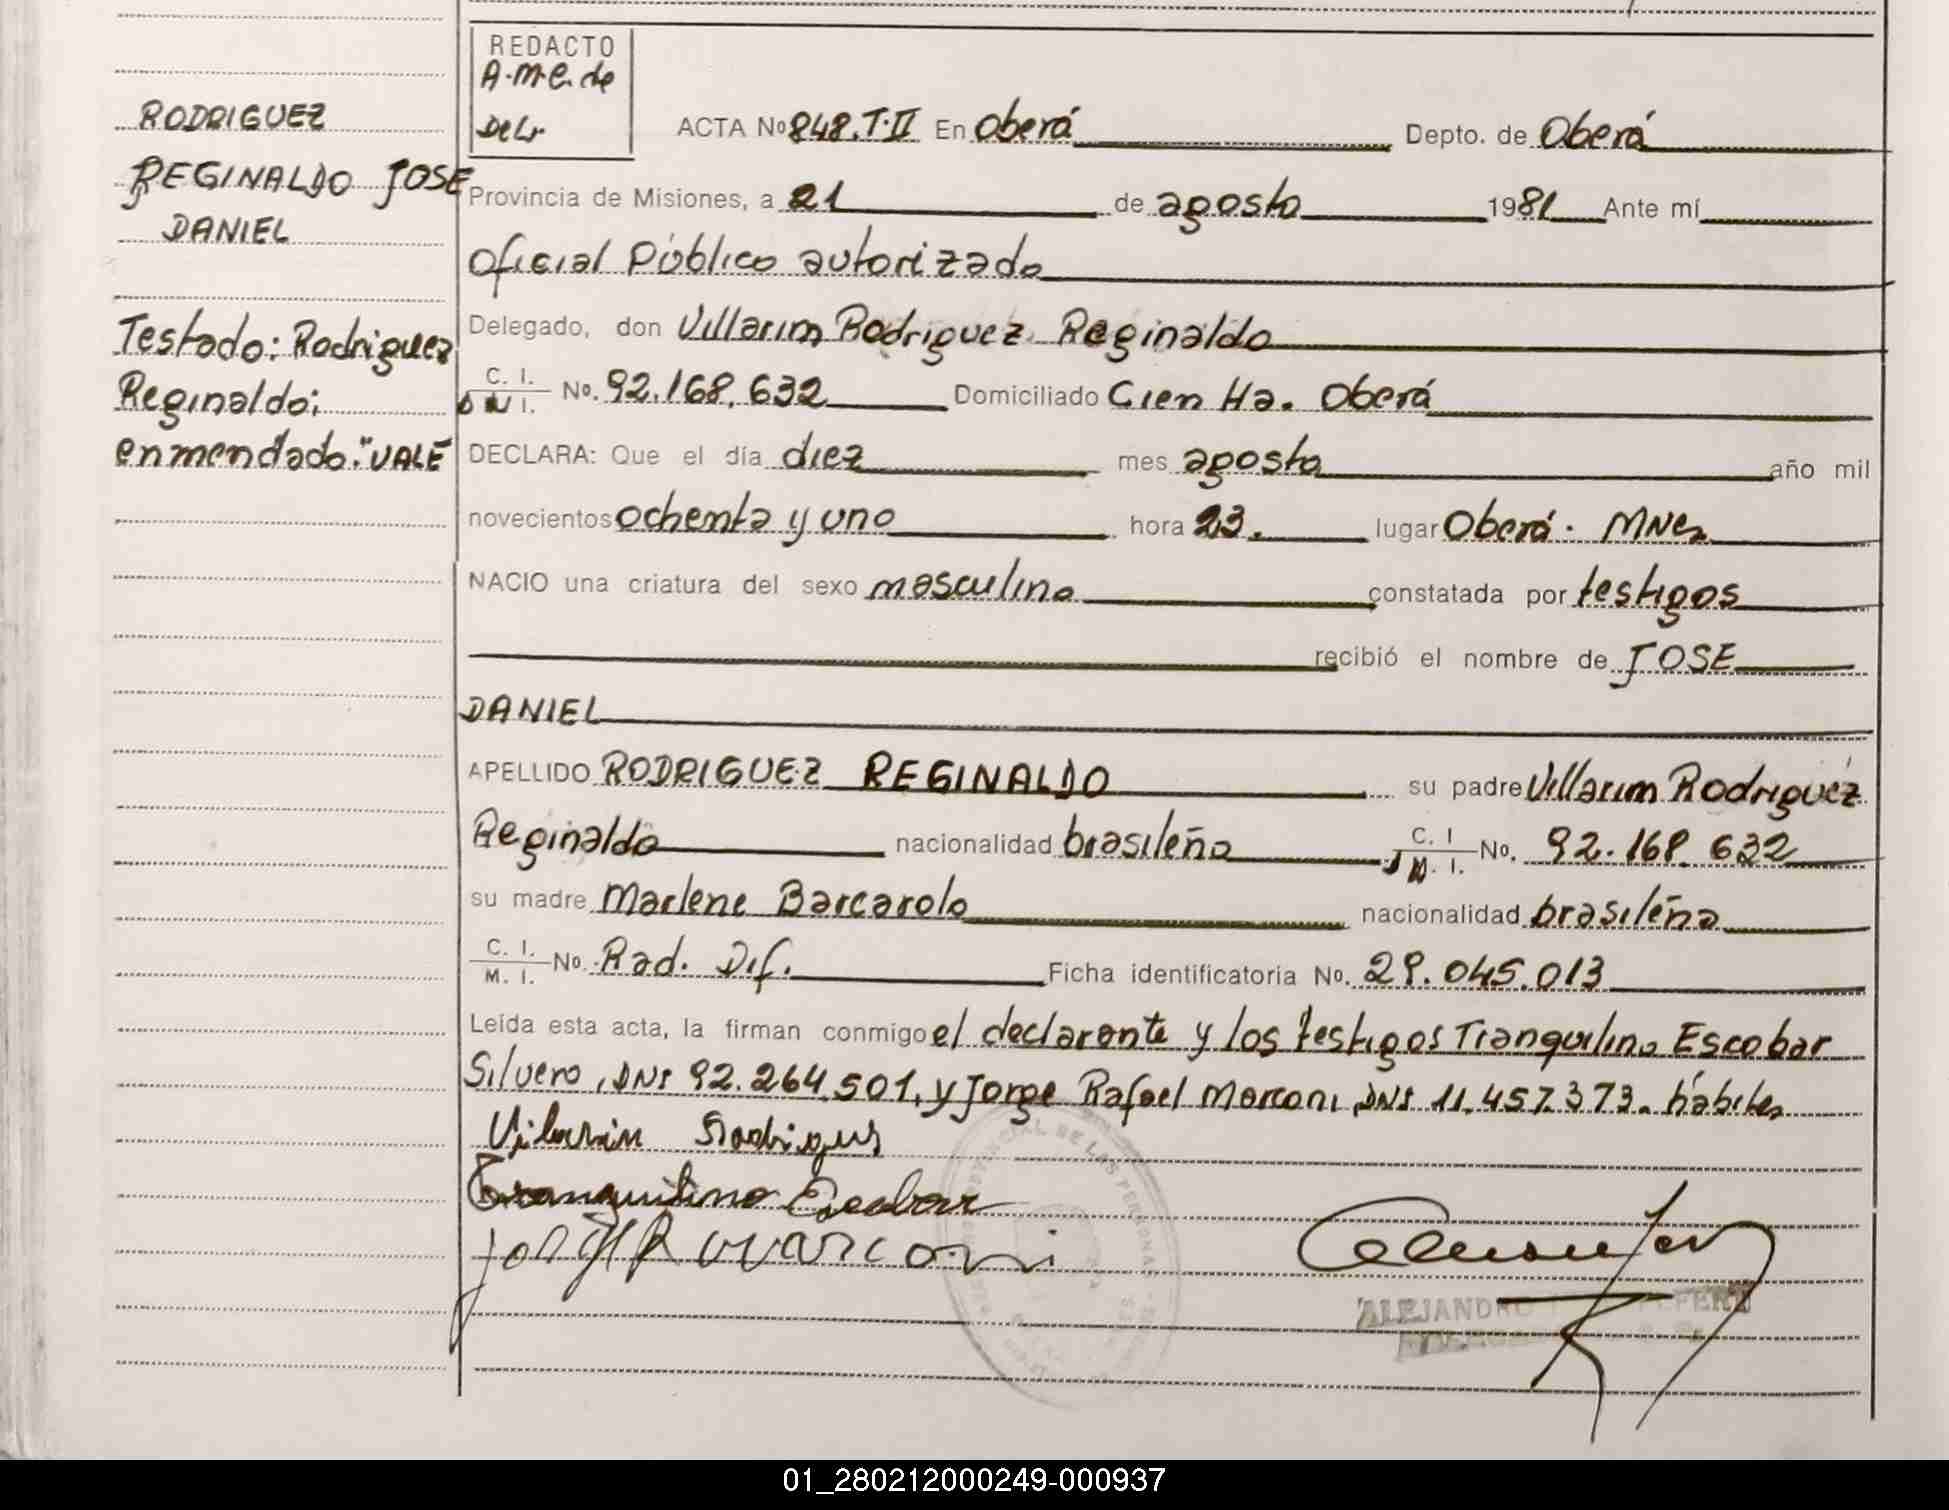 REDACTO
A.M.C. de
RODRIGUEZ
REGINALDO JOSE
DANIEL
Testado: Rodriguez
Reginaldo;
enmendado: "VALE
ACTA No 848.T.II En Oberá Depto. de Oberá
Provincia de Misiones, a 21 de agosto 1981 Ante mí
Oficial Público autorizado
Delegado, don Villarim Rodriguez Reginaldo
C. I. D N I. No. 92.168.632 Domiciliado Cien Ha. Oberá
DECLARA: Que el día diez mes agosto año mil
novecientos ochenta y uno hora 23. lugar Oberá. MNes
NACIO una criatura del sexo masculino constatada por testigos
recibió el nombre de JOSE
DANIEL
APELLIDO RODRIGUEZ REGINALDO su padre Villarim Rodriguez
Reginaldo nacionalidad brasileña C. I M. I. No. 92.168.632
su madre Marlene Barcarolo nacionalidad brasileña
C. I. M. I. No. Rad. Dif. Ficha identificatoria No. 29.045.013
Leída esta acta, la firman conmigo el declarante y los testigos Tranquilino Escobar
Silvero, DNI 92.264.501, y Jorge Rafael Marconi, DNI 11.457.373. hábiles
Vilarin Rodrigues
Tranquilino Escobar
Jorge R Marconi
ALEJANDRO
01_280212000249-000937